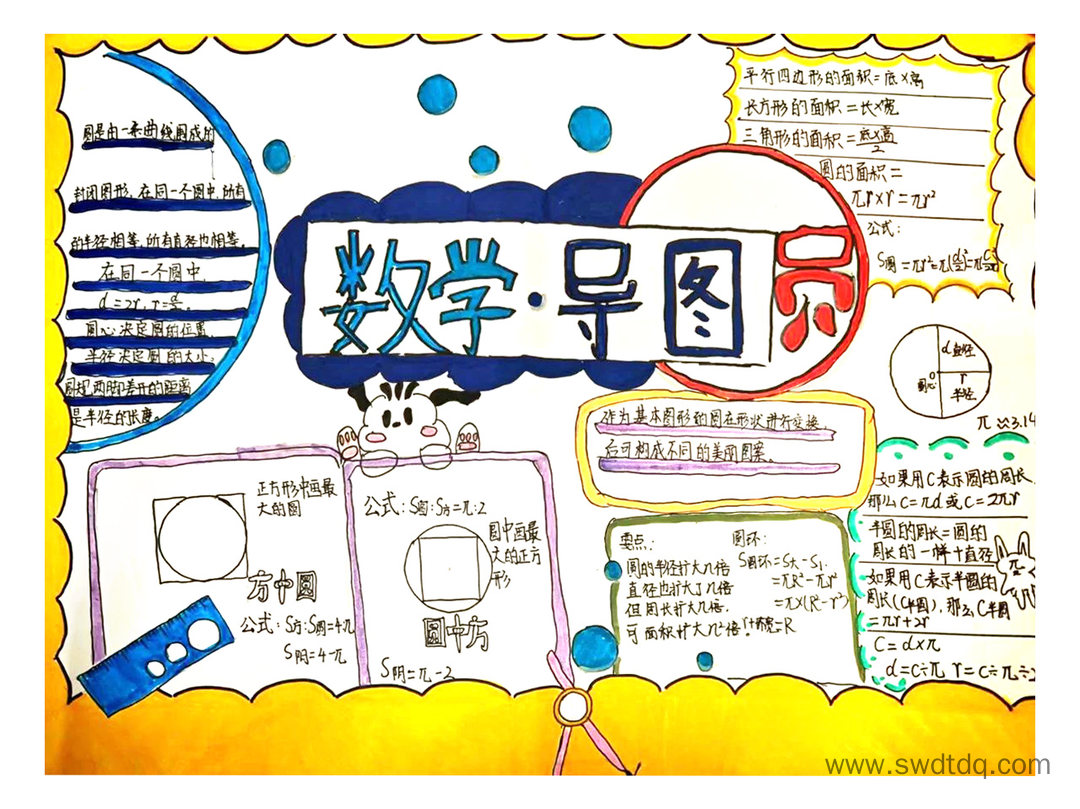 数学·导图
圆
圆是由一条曲线围成的
封闭图形,在同一个圆中,所有
的半径相等,所有直径也相等。
在同一个圆中
d=2r,r=d/2。
圆心决定圆的位置
半径决定圆的大小。
圆规两脚差开的距离
是半径的长度。
平行四边形的面积=底×高
长方形的面积=长×宽
三角形的面积=底×高/2
圆的面积=
πr×r=πr²
公式:
d直径
O
圆心
r
半径
π≈3.14
作为基本图形的圆在形状进行变换
后可构成不同的美丽图案。
正方形中画最
大的圆
方中圆
公式:S方:S圆=4:π
S阴=4-π
公式:S圆:S方=π:2
圆中画最
大的正方
形
圆中方
S阴=π-2
要点:
圆的半径扩大几倍
直径也扩大了几倍
但周长扩大几倍.
可面积扩大几²倍。
圆环:
S圆环=S大-S小
=πR²-πr²
=π×(R²-r²)
r+环宽=R
如果用C表示圆的周长
那么C=πd或C=2πr
半圆的周长=圆的
周长的一半+直径
π
如果用C表示半圆的
周长(C半圆),那么C半圆
=πr+2r
C=d×π
d=C÷π r=C÷π÷2
www.swdtdq.com